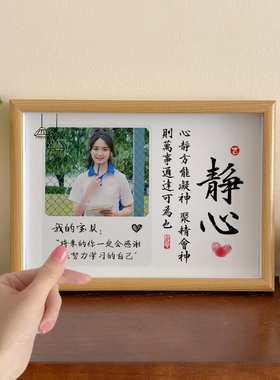 静心
心静方能凝神 聚精會神
則萬事通達可為也
我的宝贝:
“将来的你一定会感谢
努力学习的自己”